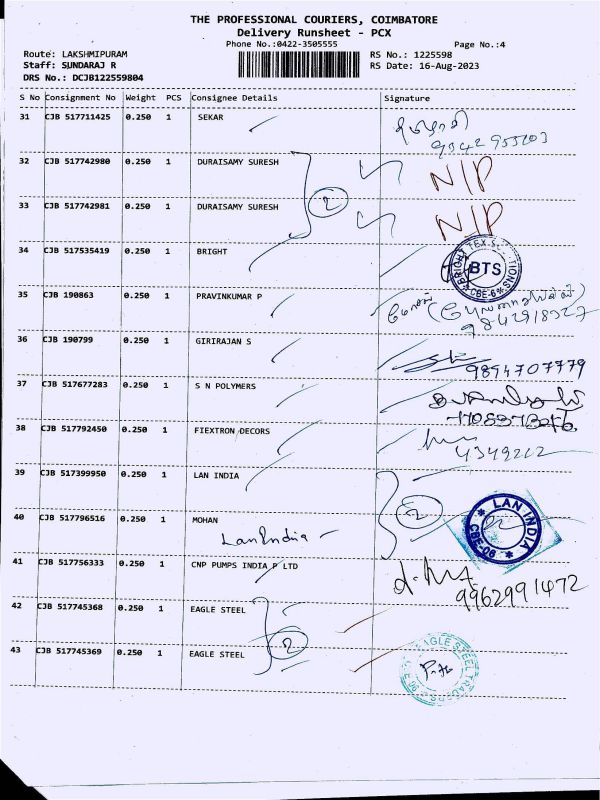 THE PROFESSIONAL COURIERS, COIMBATORE
Delivery Runsheet - PCX
Phone No.:0422-3505555 Page No.:4
Route: LAKSHMIPURAM RS No.: 1225598
Staff: SUNDARAJ R RS Date: 16-Aug-2023
DRS No.: DCJB122559804
S No Consignment No Weight PCS Consignee Details Signature
31 CJB 517711425 0.250 1 SEKAR
9342955203
32 CJB 517742980 0.250 1 DURAISAMY SURESH N/P
2
33 CJB 517742981 0.250 1 DURAISAMY SURESH N/P
34 CJB 517535419 0.250 1 BRIGHT BTS CBE-6
35 CJB 190863 0.250 1 PRAVINKUMAR P
9842918327
36 CJB 190799 0.250 1 GIRIRAJAN S
9894707779
37 CJB 517677283 0.250 1 S N POLYMERS
38 CJB 517792450 0.250 1 FIEXTRON DECORS
4349222
39 CJB 517399950 0.250 1 LAN INDIA
2 LAN INDIA CBE-06
40 CJB 517796516 0.250 1 MOHAN
Lan India
41 CJB 517756333 0.250 1 CNP PUMPS INDIA P LTD
9962991472
42 CJB 517745368 0.250 1 EAGLE STEEL
2 EAGLE STEEL TRADERS
43 CJB 517745369 0.250 1 EAGLE STEEL